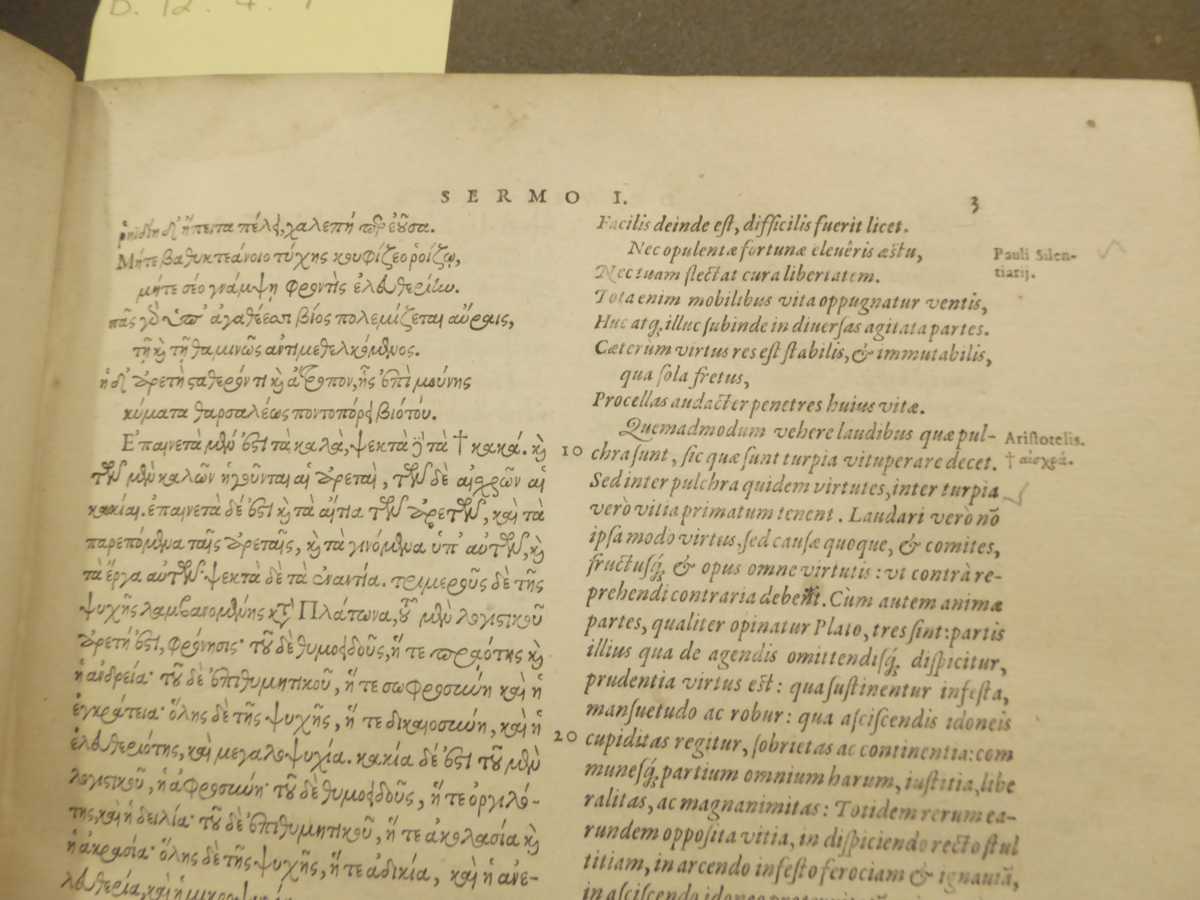 D. 12. 4. 1
SERMO I. 3
ῥηϊδίη δ᾽ ἤπειτα πέλει, χαλεπή περ ἐοῦσα.
Μήτε βαθυκτεάνοιο τύχης κουφίζεο ῥοίζῳ,
μήτε σέο γνάμψῃ φροντὶς ἐλευθερίην.
πᾶς γὸ ὑπ᾽ βίος πολεμίζεται αὔραις,
τῇ κὶ τῇ θαμινῶς ἀντιμεθελκόμενος.
ἡ δ᾽ ἀρετὴ σταθερόν τι κὶ ἄτροπον, ἧς ἐπὶ μούνης
κύματα θαρσαλέως ποντοπόρει βιότου.
Ἐπαινετὰ μέν ἐστι τὰ καλὰ, ψεκτὰ ϳ τὰ † κακά. κὶ
τῶν μὲν καλῶν ἡγοῦνται αἱ ἀρεταὶ, τῶν δὲ αἰσχρῶν αἱ
κακίαι. ἐπαινετὰ δέ ἐστι κὶ τὰ αἴτια τῶν ἀρετῶν, καὶ τὰ
παρεπόμενα ταῖς ἀρεταῖς, κὶ τὰ γινόμενα ὑπ᾽ αὐτῶν, κὶ
τὰ ἔργα αὐτῶν· ψεκτὰ δὲ τὰ ἐναντία. τριμεροῦς δὲ τῆς
ψυχῆς λαμβανομένης κτ Πλάτωνα, τοῦ μὲν λογιστικοῦ
ἀρετή ἐστι, φρόνησις· τοῦ δὲ θυμοειδοῦς, ἥ τε πραότης κὶ
ἡ ἀνδρεία· τοῦ δὲ ἐπιθυμητικοῦ, ἥ τε σωφροσύνη καὶ ἡ
ἐγκράτεια· ὅλης δὲ τῆς ψυχῆς, ἥ τε δικαιοσύνη, καὶ ἡ
ἐλευθεριότης, καὶ μεγαλοψυχία. κακία δέ ἐστι τοῦ μὲν
λογιστικοῦ, ἡ ἀφροσύνη· τοῦ δὲ θυμοειδοῦς, ἥ τε ὀργιλό-
της, καὶ ἡ δειλία· τοῦ δὲ ἐπιθυμητικοῦ, ἥ τε ἀκολασία κὶ
ἡ ἀκρασία· ὅλης δὲ τῆς ψυχῆς, ἥ τε ἀδικία, καὶ ἡ ἀνε-
λευθερία, καὶ ἡ
Facilis deinde est, difficilis fuerit licet.
Nec opulentæ fortunæ eleuêris æstu,
Nec tuam flectat cura libertatem.
Tota enim mobilibus vita oppugnatur ventis,
Huc atq; illuc subinde in diuersas agitata partes.
Cæterum virtus res est stabilis, & immutabilis,
qua sola fretus,
Procellas audacter penetres huius vitæ.
Quemadmodum vehere laudibus quæ pul-
10 chra sunt, sic quæ sunt turpia vituperare decet.
Sed inter pulchra quidem virtutes, inter turpia
verò vitia primatum tenent. Laudari verò nõ
ipsa modo virtus, sed causæ quoque, & comites,
fructusq; & opus omne virtutis: vt contrà re-
prehendi contraria debent. Cùm autem animæ
partes, qualiter opinatur Plato, tres sint: partis
illius qua de agendis omittendisq; dispicitur,
prudentia virtus est: qua sustinentur infesta,
mansuetudo ac robur: qua asciscendis idoneis
20 cupiditas regitur, sobrietas ac continentia: com
munesq; partium omnium harum, iustitia, libe
ralitas, ac magnanimitas: Totidem rerum ea-
rundem opposita vitia, in dispiciendo recto stul
titiam, in arcendo infesto ferociam & ignauiã,
in asciscendo idoneo
Pauli Silen-
tiarij.
Aristotelis.
† αἰσχρά.